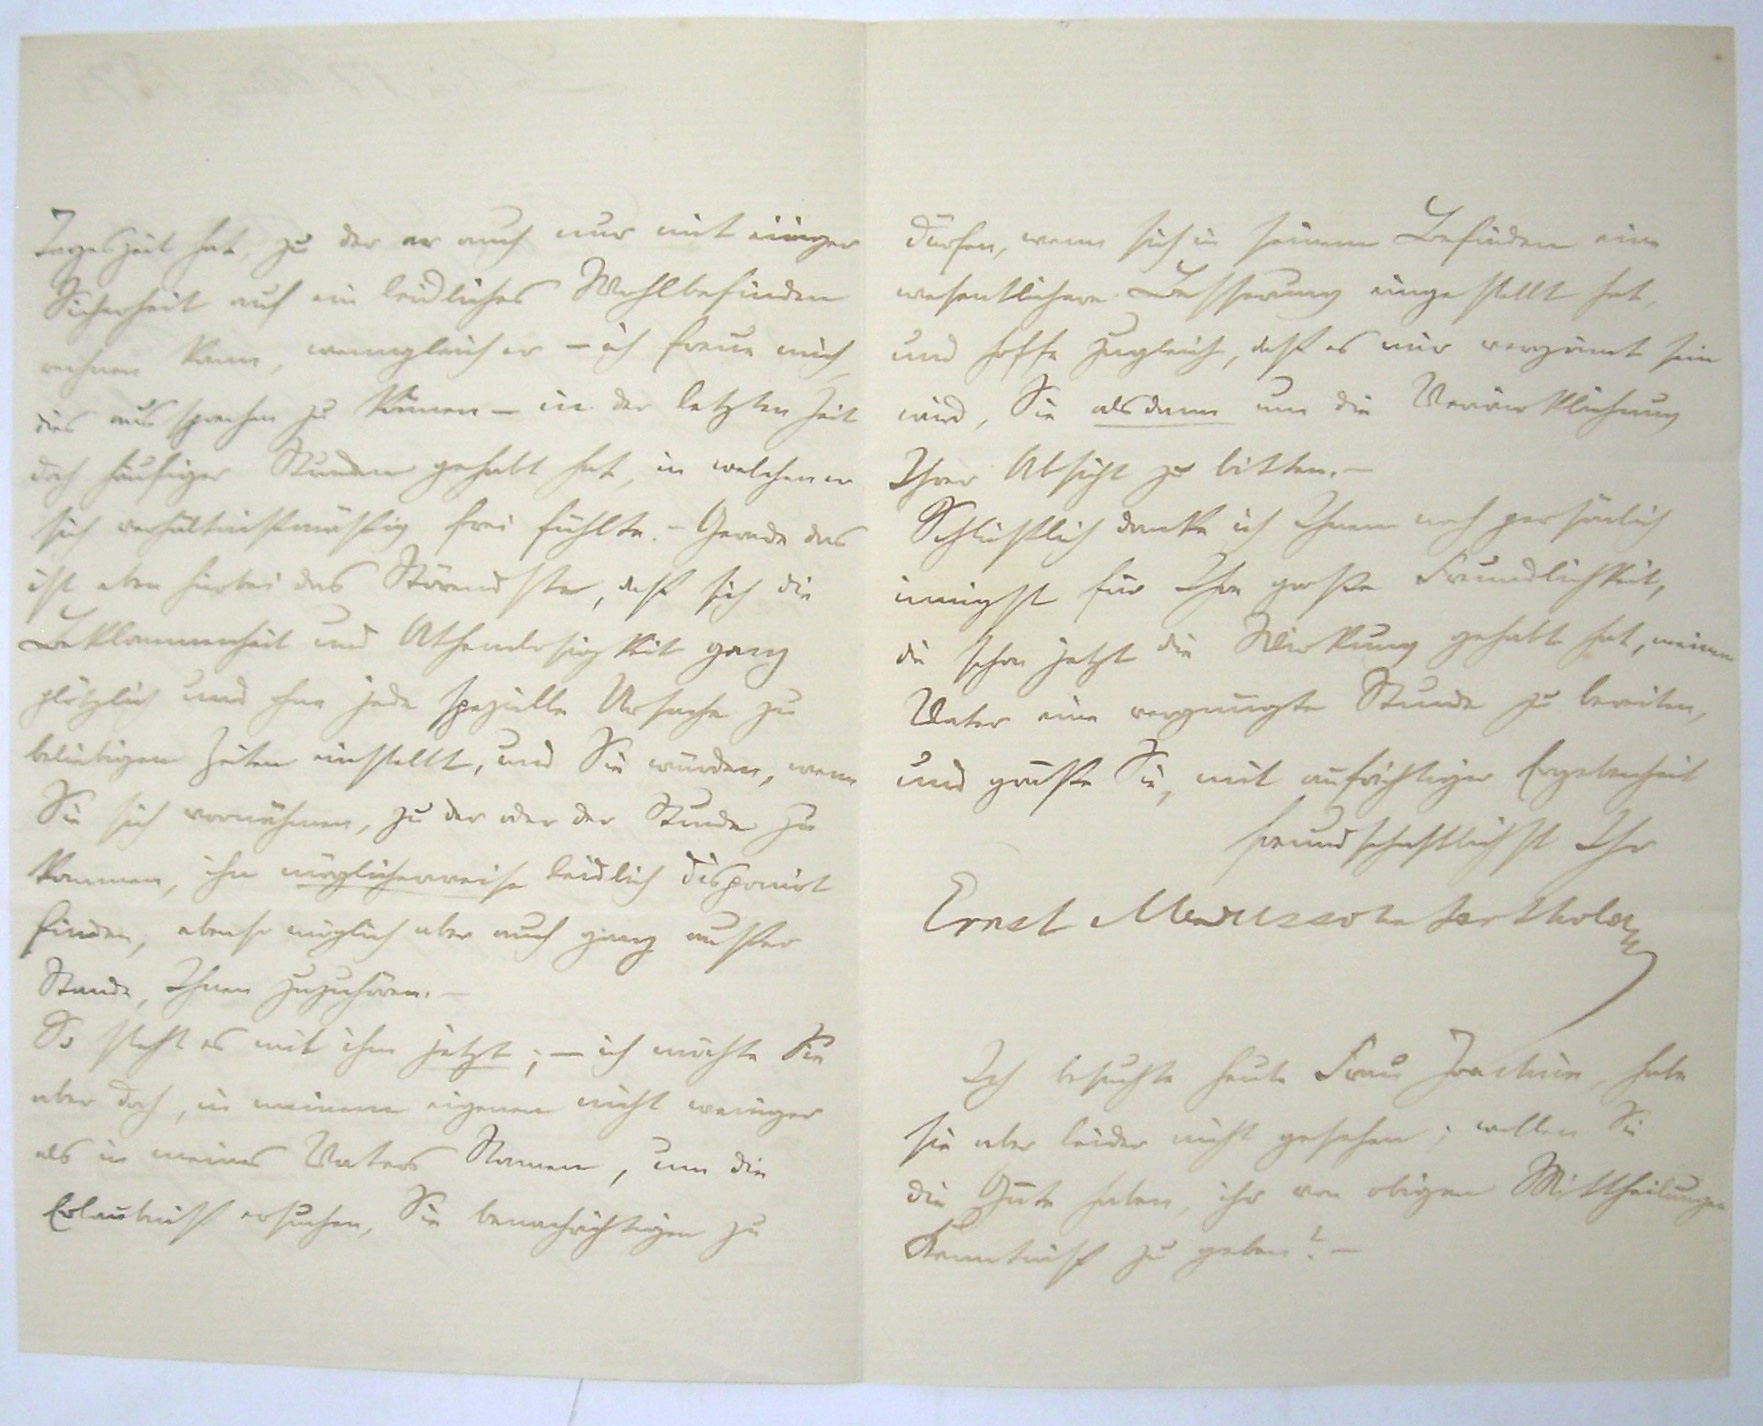 Tageszeit hat, zu der er auch nur mit einiger
Sicherheit auf ein leidliches Wohlbefinden
rechnen kann, wenngleich er – ich freue mich
dies aussprechen zu können – in der letzten Zeit
doch häufiger Stunden gehabt hat, in welchen er
sich verhältnißmäßig frei fühlte. – Gerade das
ist eben hierbei das Störendste, daß sich die
Beklommenheit und Athemlosigkeit ganz
plötzlich und ohne jede spezielle Ursache zu
beliebigen Zeiten einstellt, und Sie würden, wenn
Sie sich vornähmen, zu der oder der Stunde zu
kommen, ihn möglicherweise leidlich disponirt
finden, ebenso möglich aber auch ganz außer
Stande, Ihnen zuzuhören. –
So steht es mit ihm jetzt; – ich möchte Sie
aber doch, in meinem eigenen nicht weniger
als in meines Vaters Namen, um die
Erlaubniß ersuchen, Sie benachrichtigen zu
dürfen, wenn sich in seinem Befinden eine
wesentlichere Besserung eingestellt hat,
und hoffe zugleich, daß es mir vergönnt sein
wird, Sie alsdann um die Verwirklichung
Ihrer Absicht zu bitten. –
Schließlich danke ich Ihnen noch persönlich
innigst für Ihre große Freundlichkeit,
die schon jetzt die Wirkung gehabt hat, meinem
Vater eine vergnügte Stunde zu bereiten,
und grüße Sie, mit aufrichtiger Ergebenheit
freundschaftlichst Ihr
Ernst Mendelssohn Bartholdy
Ich besuchte heute Frau Joachim, habe
sie aber leider nicht gesehen; wollen Sie
die Güte haben, ihr von obigen Mittheilungen
Kenntniß zu geben? –